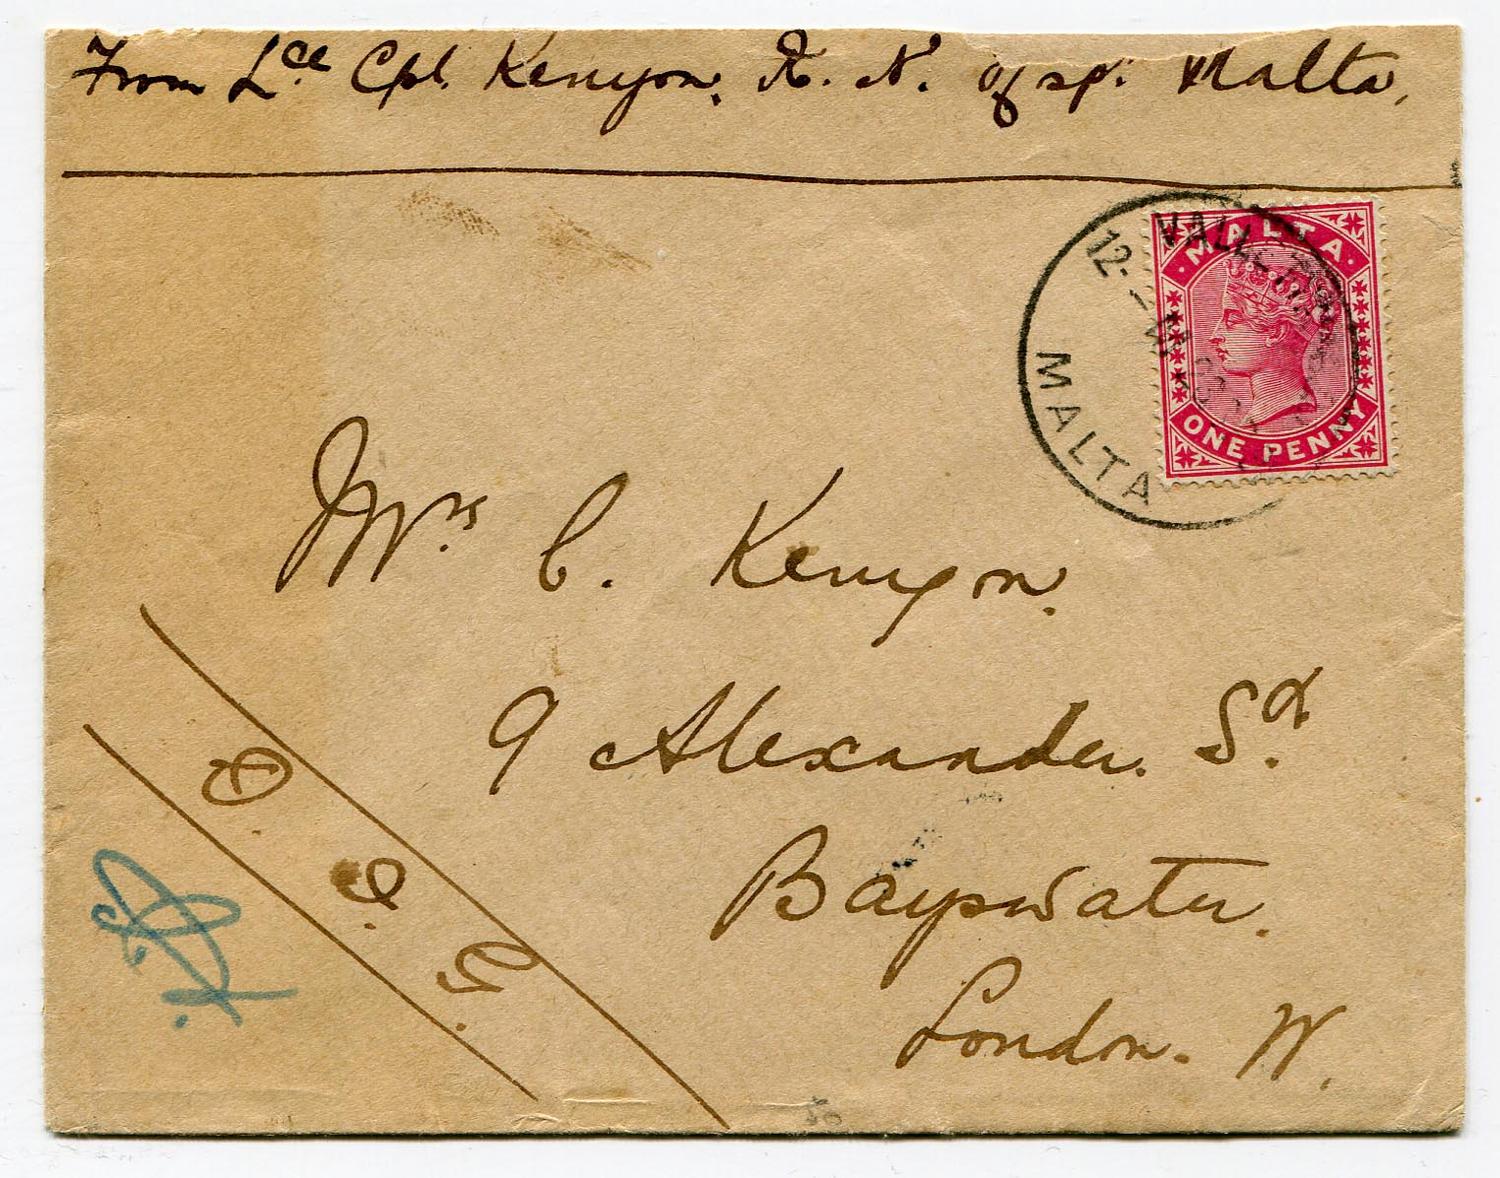 From Lce Cpl. Kenyon, R. N. Hsp. Malta,
VALLETTA
MALTA
12.
MALTA
ONE PENNY
Mrs C. Kenyon.
9 Alexander. St.
Bayswater.
London. W.